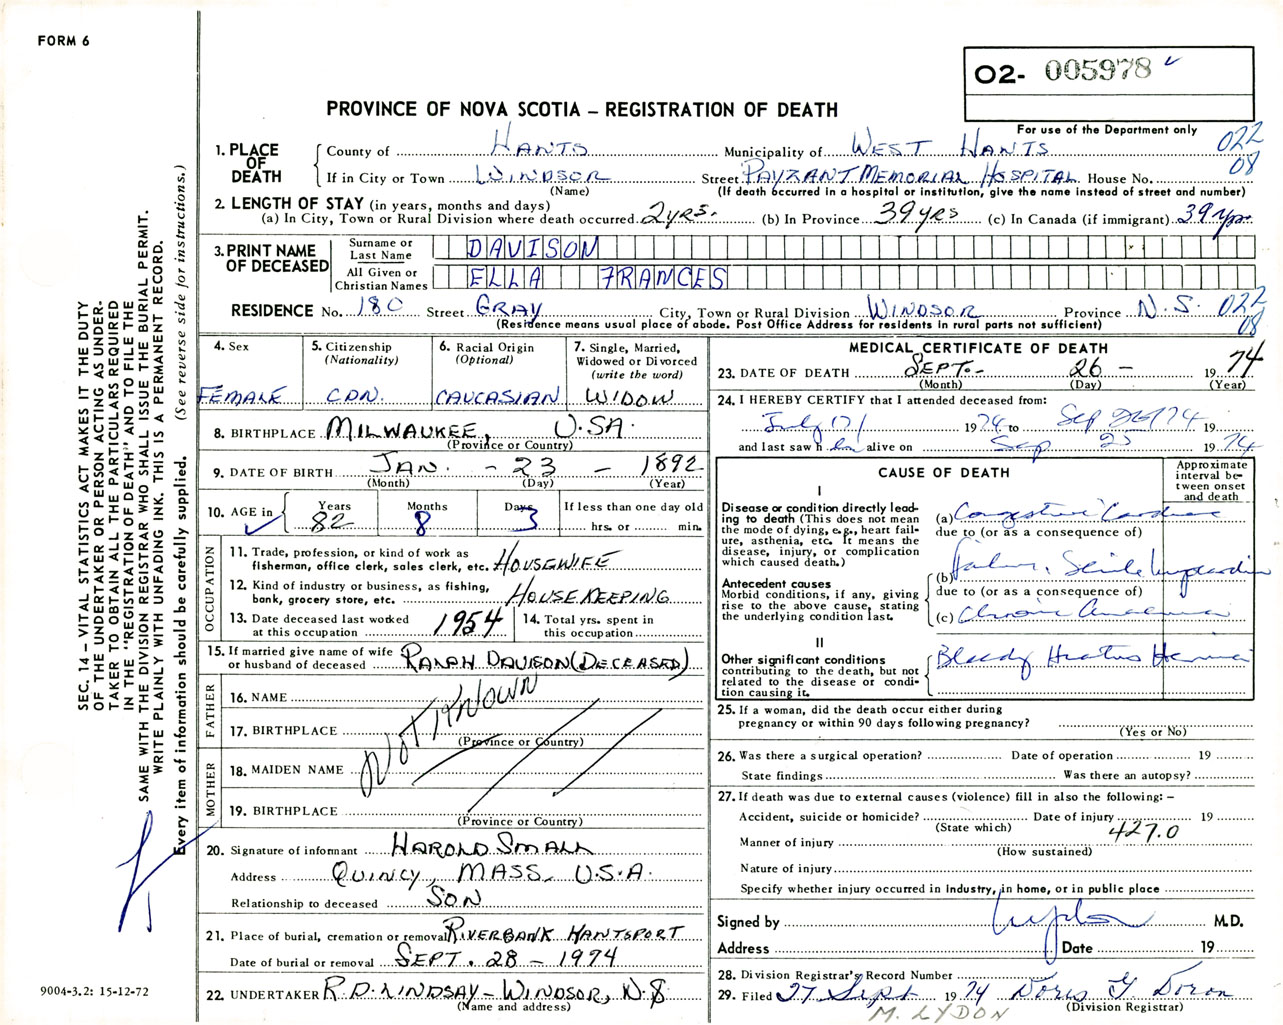 FORM 6
O2- 005978
PROVINCE OF NOVA SCOTIA – REGISTRATION OF DEATH
For use of the Department only
022
08
1. PLACE OF DEATH
County of HANTS Municipality of WEST HANTS
If in City or Town WINDSOR Street PAYZANT MEMORIAL HOSPITAL House No.
(Name) (If death occurred in a hospital or institution, give the name instead of street and number)
2. LENGTH OF STAY (in years, months and days)
(a) In City, Town or Rural Division where death occurred. 2 yrs. (b) In Province 39 yrs (c) In Canada (if immigrant) 39 yrs
3. PRINT NAME OF DECEASED
Surname or Last Name DAVISON
All Given or Christian Names ELLA FRANCES
RESIDENCE No. 180 Street GRAY City, Town or Rural Division WINDSOR Province N.S. 022
08
(Residence means usual place of abode. Post Office Address for residents in rural parts not sufficient)
4. Sex
FEMALE
5. Citizenship
(Nationality)
CDN.
6. Racial Origin
(Optional)
CAUCASIAN
7. Single, Married,
Widowed or Divorced
(write the word)
WIDOW
8. BIRTHPLACE MILWAUKEE, U.S.A.
(Province or Country)
9. DATE OF BIRTH JAN. - 23 - 1892
(Month) (Day) (Year)
10. AGE in
Years 82
Months 8
Days 3
If less than one day old
hrs. or min.
OCCUPATION
11. Trade, profession, or kind of work as
fisherman, office clerk, sales clerk, etc. HOUSEWIFE
12. Kind of industry or business, as fishing,
bank, grocery store, etc. HOUSEKEEPING
13. Date deceased last worked
at this occupation 1954
14. Total yrs. spent in
this occupation
15. If married give name of wife
or husband of deceased RALPH DAVISON (DECEASED)
FATHER
16. NAME
17. BIRTHPLACE
(Province or Country)
NOT KNOWN
MOTHER
18. MAIDEN NAME
19. BIRTHPLACE
(Province or Country)
20. Signature of informant HAROLD SMALL
Address QUINCY, MASS. U.S.A.
Relationship to deceased SON
21. Place of burial, cremation or removal RIVERBANK HANTSPORT
Date of burial or removal SEPT. 28 - 1974
22. UNDERTAKER R.D. LINDSAY - WINDSOR, N.S
(Name and address)
MEDICAL CERTIFICATE OF DEATH
23. DATE OF DEATH SEPT. - 26 - 1974
(Month) (Day) (Year)
24. I HEREBY CERTIFY that I attended deceased from:
July 1974 to Sep 26 1974
and last saw h alive on Sep 25 1974
CAUSE OF DEATH
Approximate
interval be-
tween onset
and death
I
Disease or condition directly lead-
ing to death (This does not mean
the mode of dying, e.g., heart fail-
ure, asthenia, etc. It means the
disease, injury, or complication
which caused death.)
(a) Congestive Cardiac
due to (or as a consequence of)
Antecedent causes
Morbid conditions, if any, giving
rise to the above cause, stating
the underlying condition last.
(b) Failure, Senile Myocardium
due to (or as a consequence of)
(c) Chronic
II
Other significant conditions
contributing to the death, but not
related to the disease or condi-
tion causing it.
Bleeding Hiatus Hernia
25. If a woman, did the death occur either during
pregnancy or within 90 days following pregnancy?
(Yes or No)
26. Was there a surgical operation? Date of operation 19
State findings Was there an autopsy?
27. If death was due to external causes (violence) fill in also the following: –
Accident, suicide or homicide? Date of injury 19
(State which) 427.0
Manner of injury
(How sustained)
Nature of injury
Specify whether injury occurred in Industry, in home, or in public place
Signed by M.D.
Address Date 19
28. Division Registrar's Record Number
29. Filed 27 Sept 1974 Doris G Doran
(Division Registrar)
M. LYDON
SEC. 14 – VITAL STATISTICS ACT MAKES IT THE DUTY
OF THE UNDERTAKER OR PERSON ACTING AS UNDER-
TAKER TO OBTAIN ALL THE PARTICULARS REQUIRED
IN THE "REGISTRATION OF DEATH" AND TO FILE THE
SAME WITH THE DIVISION REGISTRAR WHO SHALL ISSUE THE BURIAL PERMIT.
WRITE PLAINLY WITH UNFADING INK. THIS IS A PERMANENT RECORD.
Every item of information should be carefully supplied. (See reverse side for instructions.)
9004-3.2: 15-12-72